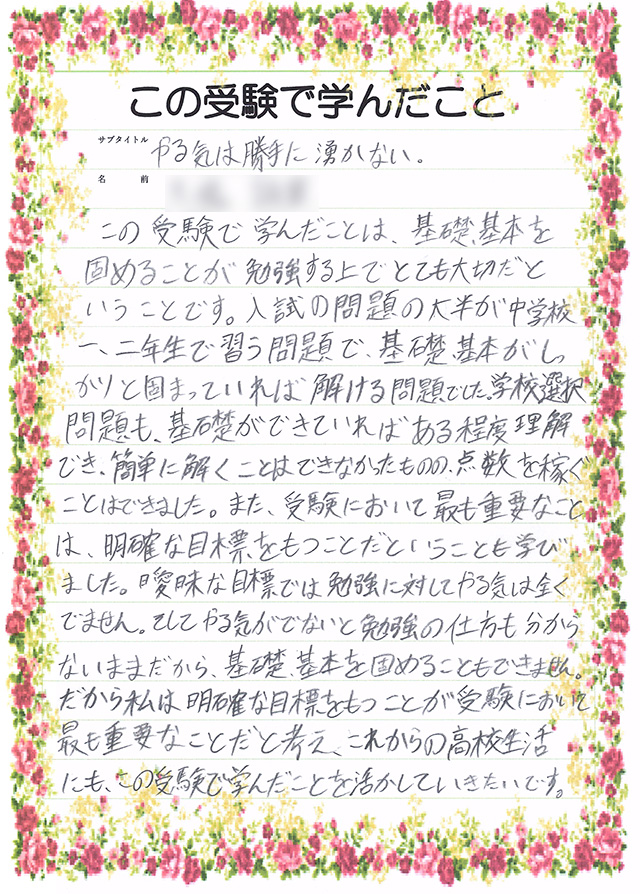 この受験で学んだこと
サブタイトル やる気は勝手に湧かない。
名前
この受験で学んだことは、基礎、基本を
固めることが勉強する上でとても大切だと
いうことです。入試の問題の大半が中学校
一、二年生で習う問題で、基礎、基本がしっ
かりと固まっていれば解ける問題でした。学校選択
問題も、基礎ができていればある程度理解
でき、簡単に解くことはできなかったものの、点数を稼ぐ
ことはできました。また、受験において最も重要なこと
は、明確な目標をもつことだということも学び
ました。曖昧な目標では勉強に対してやる気は全く
でません。そしてやる気がでないと勉強の仕方も分から
ないままだから、基礎、基本を固めることもできません。
だから私は明確な目標をもつことが受験において
最も重要なことだと考え、これからの高校生活
にも、この受験で学んだことを活かしていきたいです。